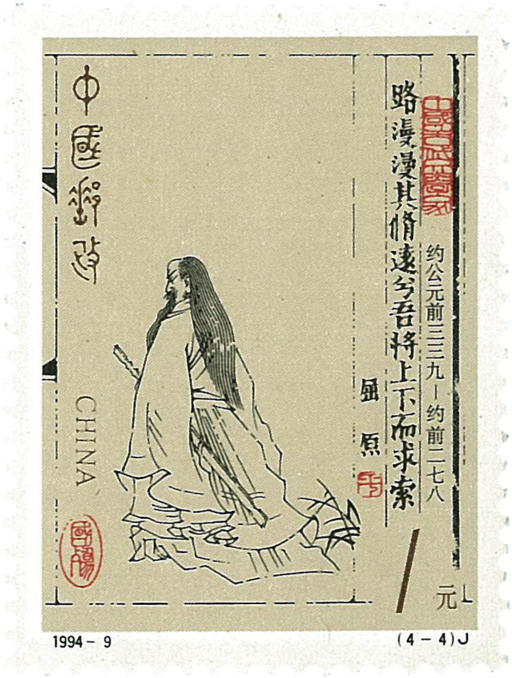 中國古代文學家
约公元前三三九—约前二七八
路漫漫其脩遠兮吾将上下而求索
屈原
中國郵政
CHINA
國殤
1元
1994-9
(4-4)J